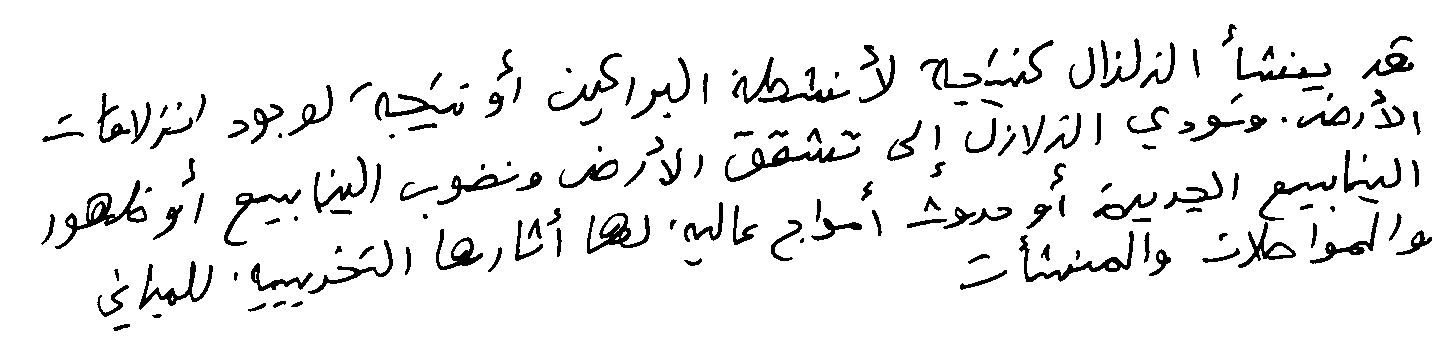 قد ينشأ الزلزال كنتيجة لأنشطة البراكين أو نتيجة لوجود انزلاقات
الأرض. وتودي الزلازل إلى تشقق الأرض ونضوب الينابيع أو ظهور
الينابيع الجديدة أو حدوث أمواج عالية. لها أثارها التخريبية. للمباني
والمواصلات والمنشأت